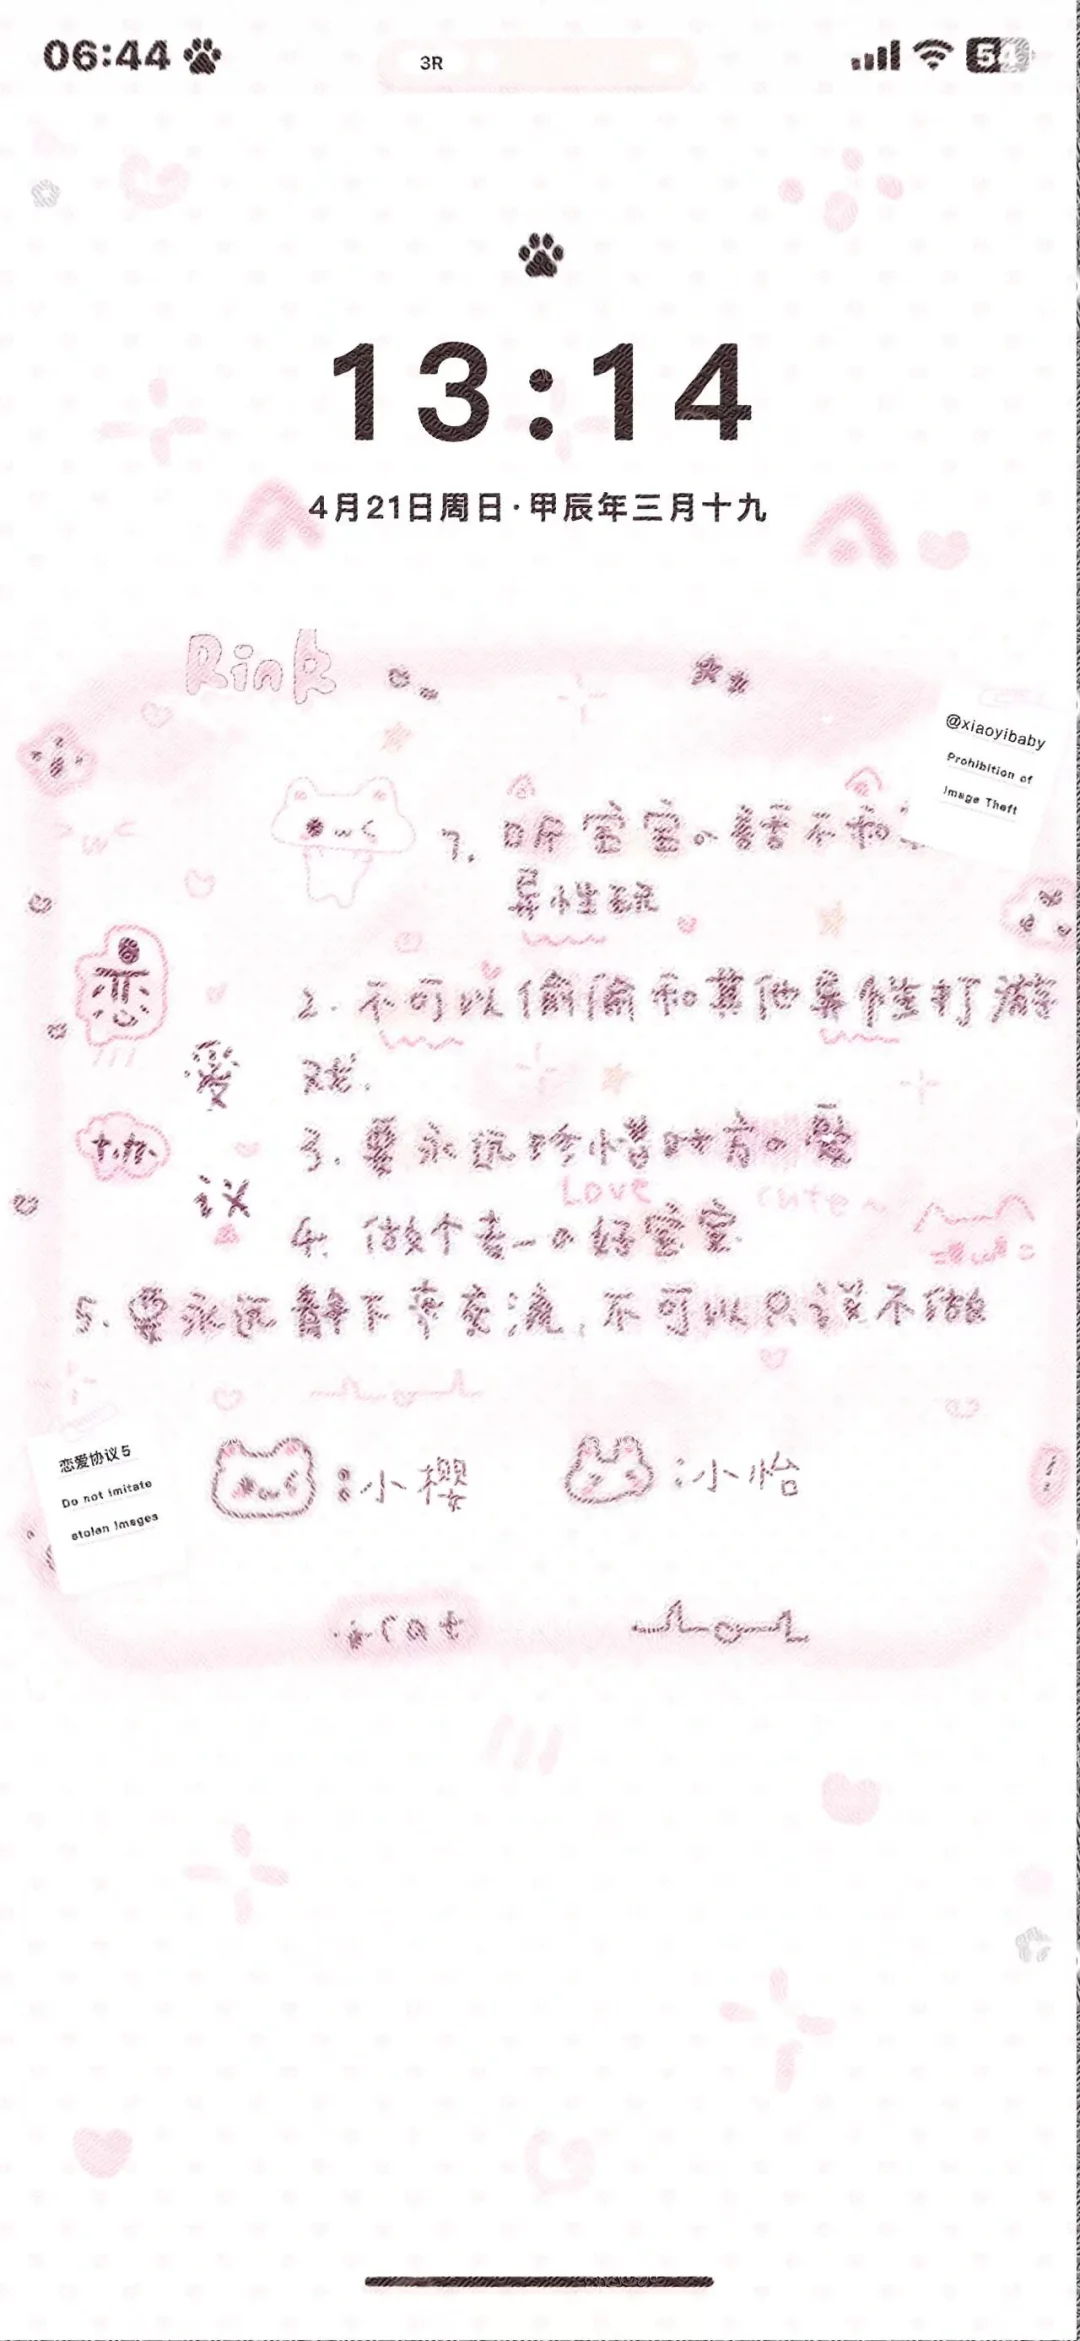 06:44
3R
54
13:14
4月21日周日·甲辰年三月十九
Rink
@xiaoyibaby
Prohibition of
Image Theft
1. 听宝宝の话不和
异性玩
恋爱协议
2. 不可以偷偷和其他异性打游
戏.
3. 要永远珍惜对方の爱
Love cute~
4. 做个专一の好宝宝
5. 要永远静下来交流, 不可以只说不做
恋爱协议5
Do not imitate
stolen Images
:小樱
:小怡